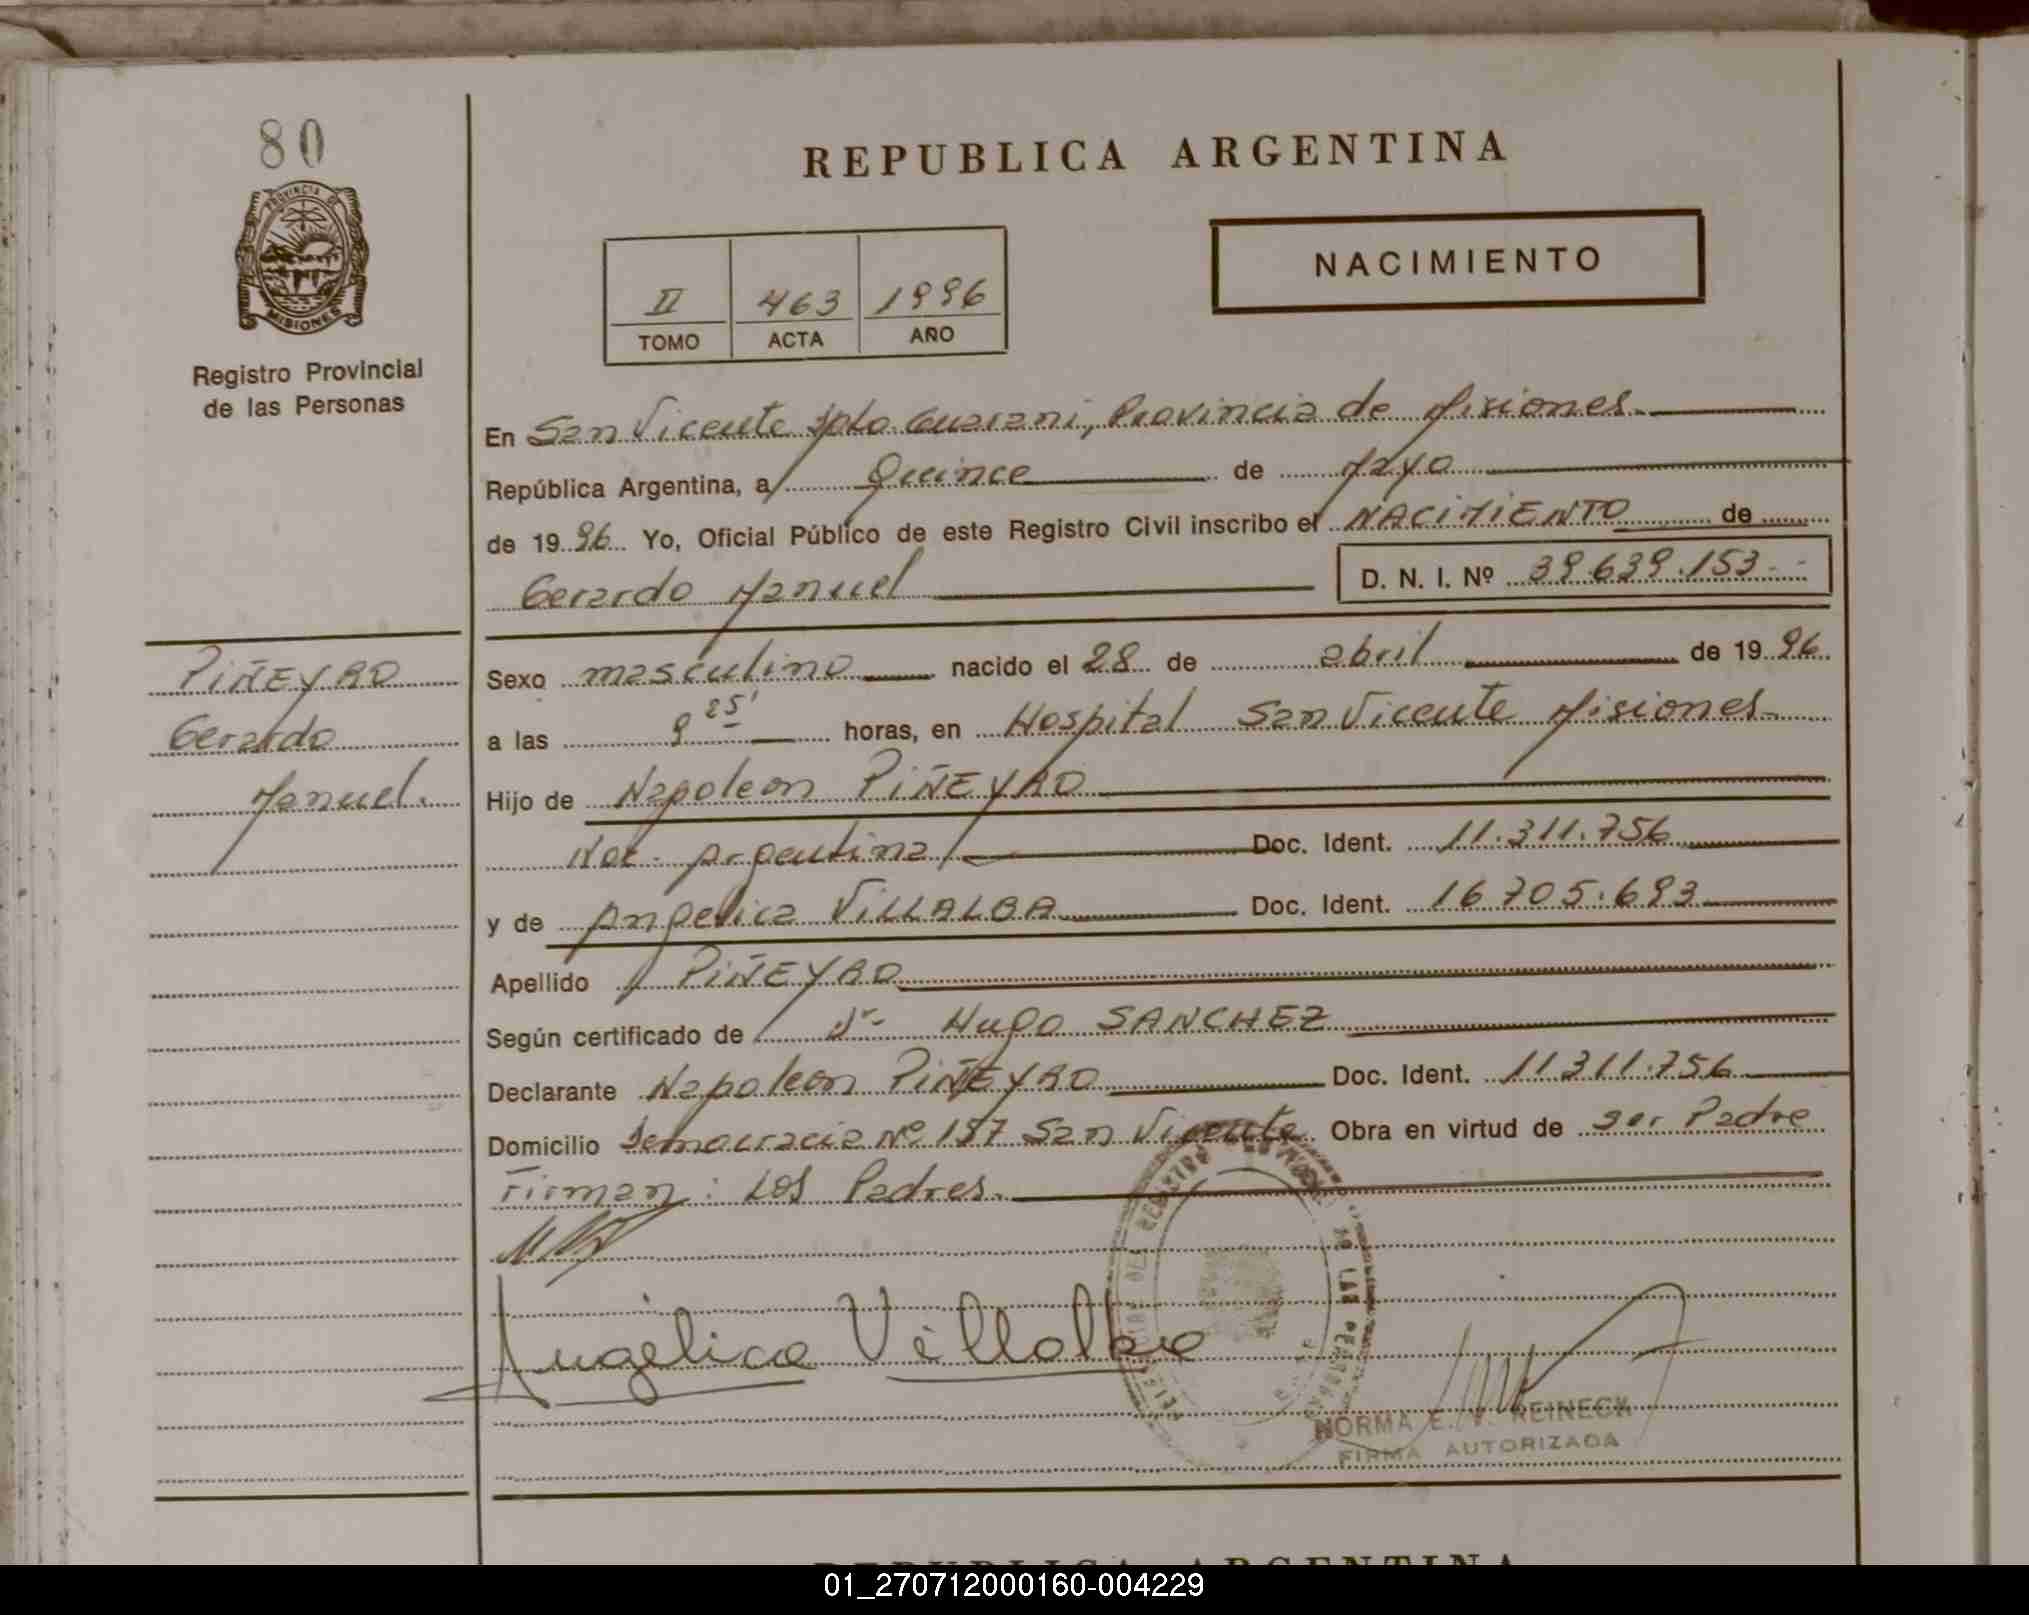 80
PROVINCIA DE
MISIONES
Registro Provincial
de las Personas
REPUBLICA ARGENTINA
NACIMIENTO
II 463 1996
TOMO ACTA AÑO
En San Vicente Dpto Guarani, Provincia de Misiones
República Argentina, a Quince de Mayo
de 1996 Yo, Oficial Público de este Registro Civil inscribo el NACIMIENTO de
Gerardo Manuel D. N. I. Nº 39.639.153
PIÑEYRO
Gerardo
Manuel.
Sexo masculino nacido el 28 de abril de 1996
a las 9 25' horas, en Hospital San Vicente Misiones
Hijo de Napoleon PIÑEYRO
Nac. Argentina Doc. Ident. 11.311.756
y de Angelica VILLALBA Doc. Ident. 16.705.693
Apellido PIÑEYRO
Según certificado de Dr. Hugo SANCHEZ
Declarante Napoleon PIÑEYRO Doc. Ident. 11311.756
Domicilio Democracia Nº 157 San Vicente Obra en virtud de ser Padre
Firman: Los Padres.
Angélica Villalba
NORMA E. V. REINECK
FIRMA AUTORIZADA
REPUBLICA ARGENTINA
01_270712000160-004229